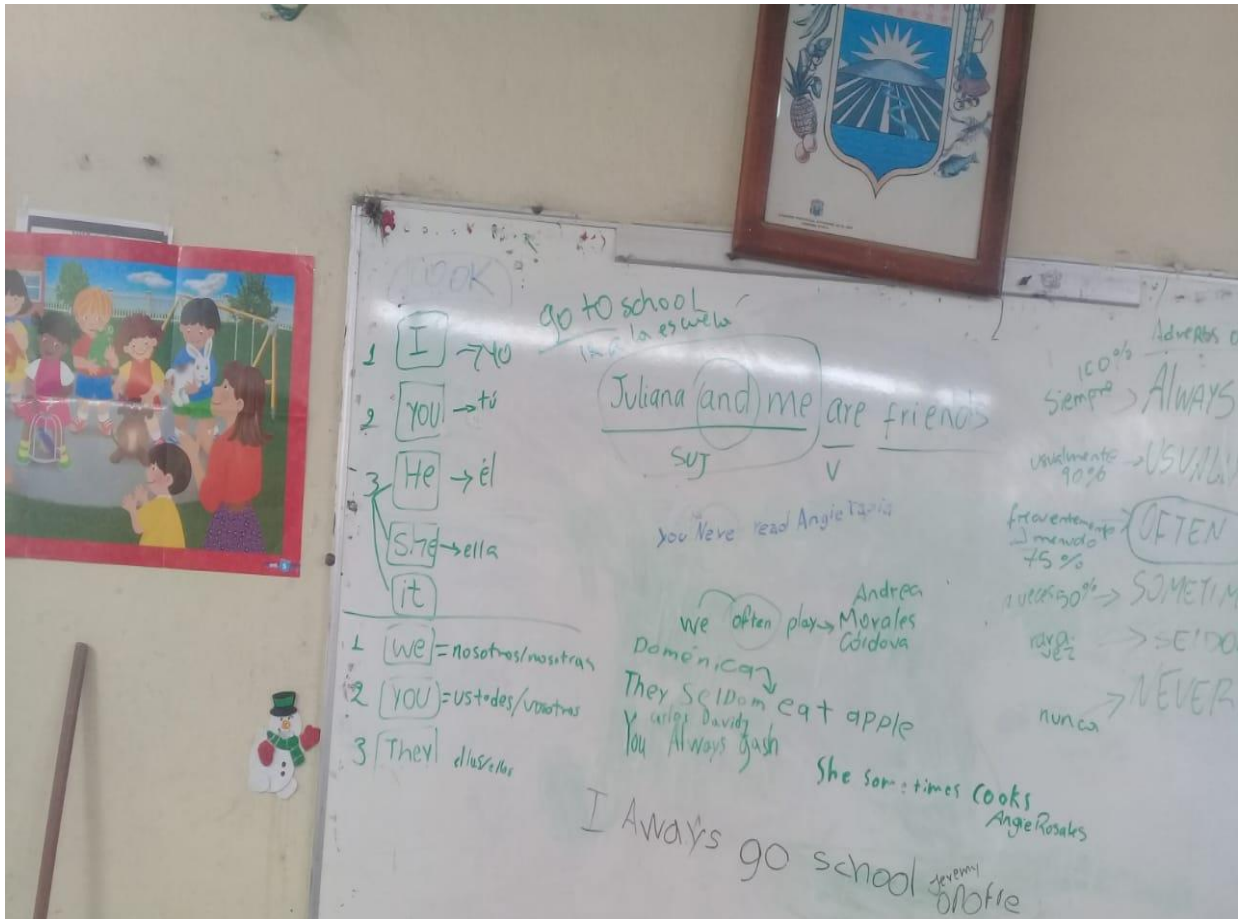 LOOK
go to school
ir a la escuela
1 I → yo
2 YOU → tú
3 He → él
She → ella
it
1 we = nosotros/nosotras
2 YOU = ustedes/vosotros
3 They ellos/ellas
Juliana and me are friends
SUJ V
You Neve read Angie Tapia
we often play → Andrea
Morales
Córdova
Doménica
They SelDom eat apple
Carlos David
You Always
She sometimes cooks
Angie Rosales
I Aways go school Jeremy
onofre
Adverbs
100%
siempre → ALWAYS
usualmente → USUALL
90%
frecuentemente → OFTEN
a menudo
75%
a veces 50% → SOMETIM
rara → SELDO
vez
nunca → NEVER